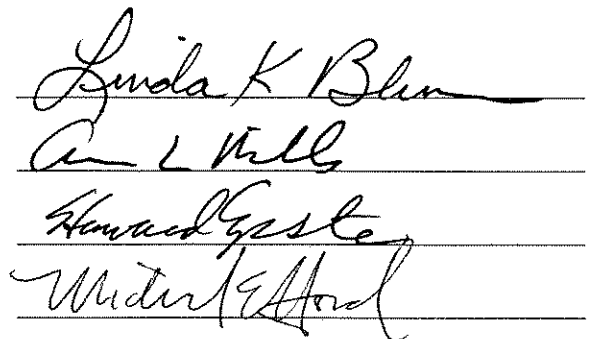 Linda K Blum
L Mills
Howard Epstein
Michael